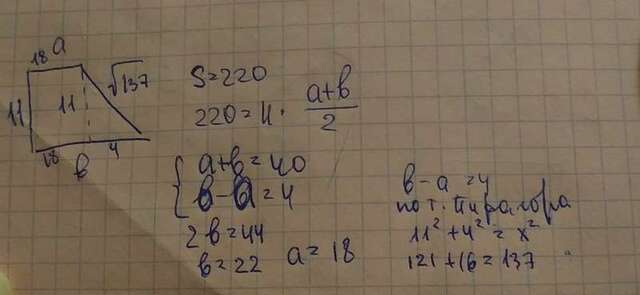 18 a
√137
11
11
18 4
b
S=220
220=11·(a+b)/2
{a+b=40
b-a=4
2b=44
b=22 a=18
b-a=4
по т. Пифагора
11²+4²=x²
121+16=137